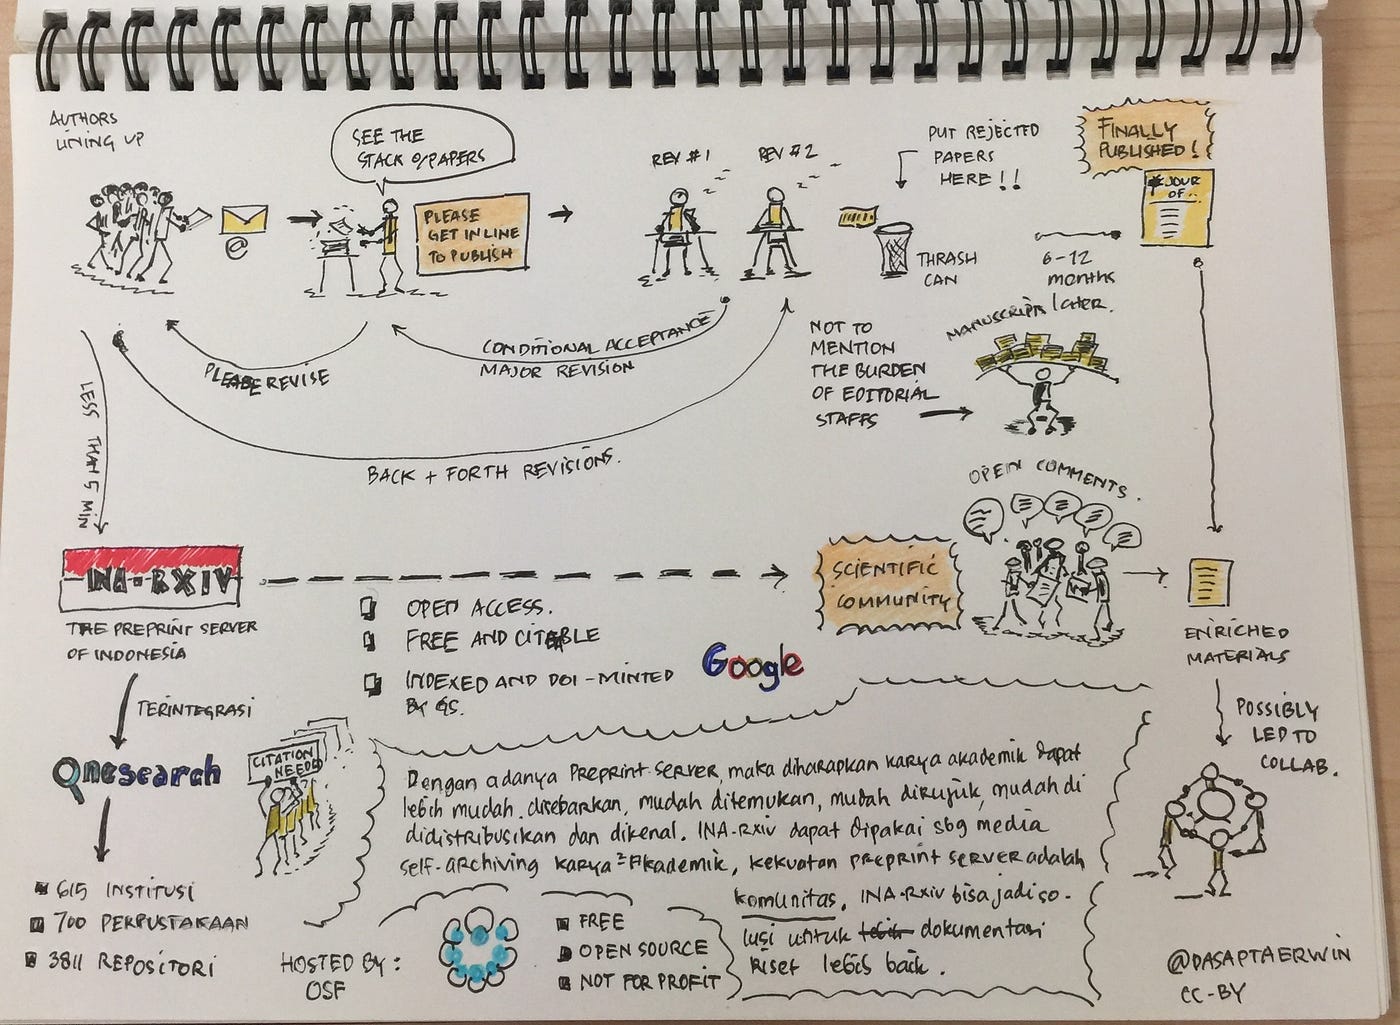 AUTHORS
LINING UP
@
SEE THE
STACK OF PAPERS
PLEASE
GET IN LINE
TO PUBLISH
REV #1
REV #2
PUT REJECTED
PAPERS
HERE!!
THRASH
CAN
FINALLY
PUBLISHED!
JOUR
OF..
6-12
months
later.
PLEASE REVISE
CONDITIONAL ACCEPTANCE
MAJOR REVISION
BACK + FORTH REVISIONS.
NOT TO
MENTION
THE BURDEN
OF EDITORIAL
STAFFS
MANUSCRIPTS
LESS THAN 5 MIN
INA-RXIV
THE PREPRINT SERVER
OF INDONESIA
OPEN ACCESS.
FREE AND CITABLE
INDEXED AND DOI-MINTED
BY GS.
Google
SCIENTIFIC
COMMUNITY
OPEN COMMENTS.
ENRICHED
MATERIALS
POSSIBLY
LED TO
COLLAB.
TERINTEGRASI
Onesearch
615 INSTITUSI
700 PERPUSTAKAAN
3811 REPOSITORI
CITATION
NEEDED
Dengan adanya PREPRINT-SERVER, maka diharapkan karya akademik dapat
lebih mudah disebarkan, mudah ditemukan, mudah dirujuk, mudah di
didistribusikan dan dikenal. INA-RXIV dapat dipakai sbg media
self-archiving karya² Akademik, kekuatan PREPRINT SERVER adalah
komunitas. INA-RXIV bisa jadi so-
lusi untuk lebih dokumentasi
Riset lebih baik.
HOSTED BY:
OSF
FREE
OPEN SOURCE
NOT FOR PROFIT
@DASAPTAERWIN
CC-BY